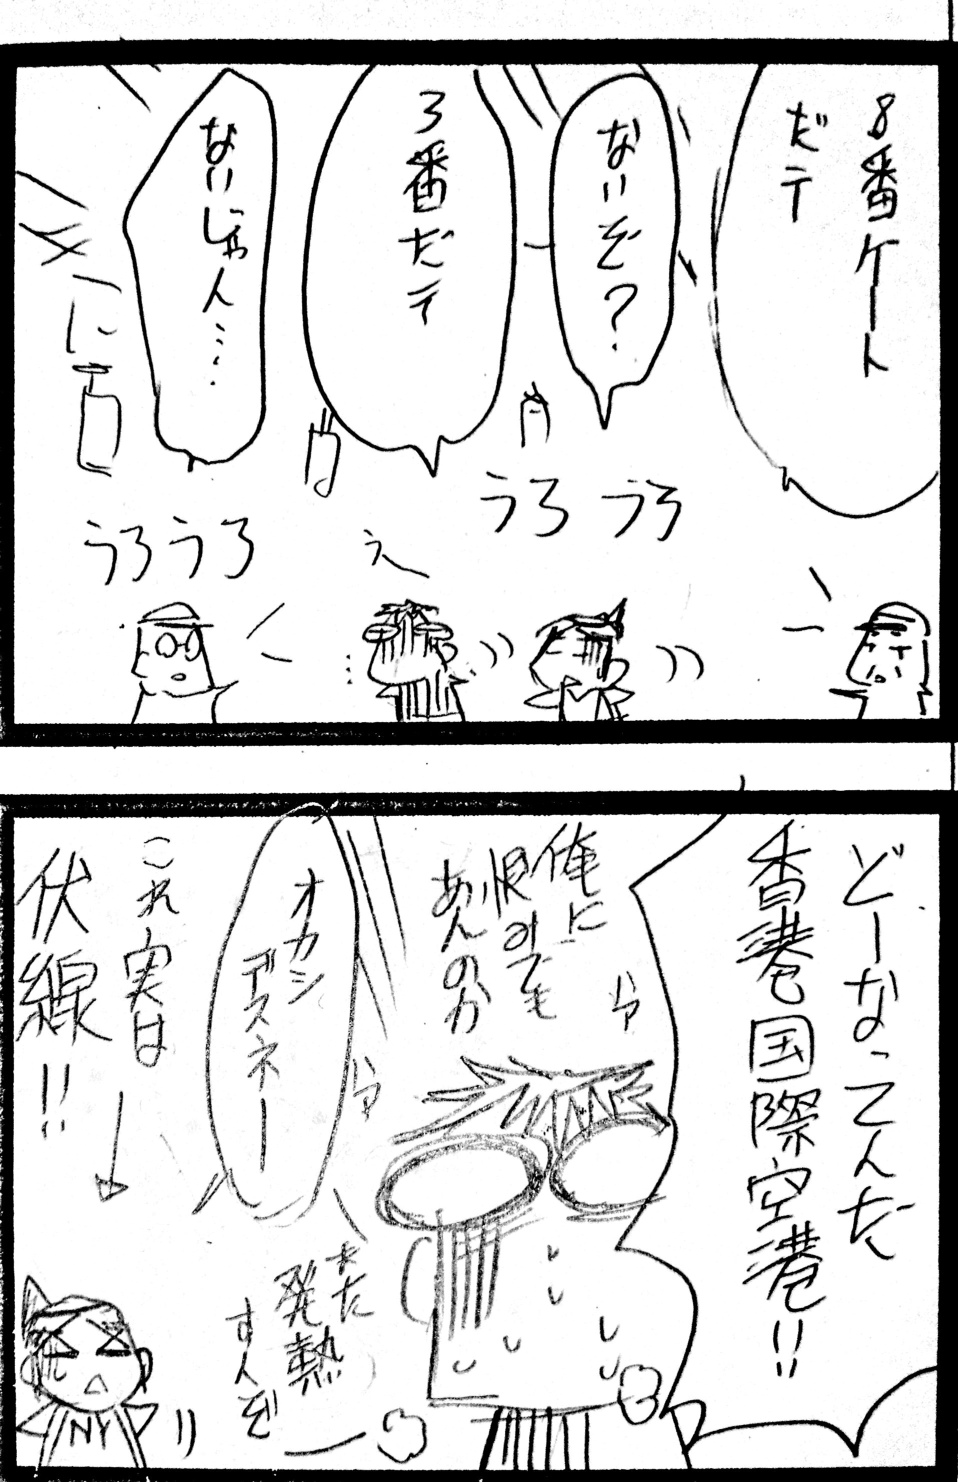 8番ゲート
だテ
ないぞ?
3番だテ
ないじゃん…
うろうろ
えー
うろうろ
どーなってんだ
香港国際空港!!
俺に
恨みでも
あんのか
オカシ
デスネー
これ実は
伏線!!
また
発熱
すんぞ
NY